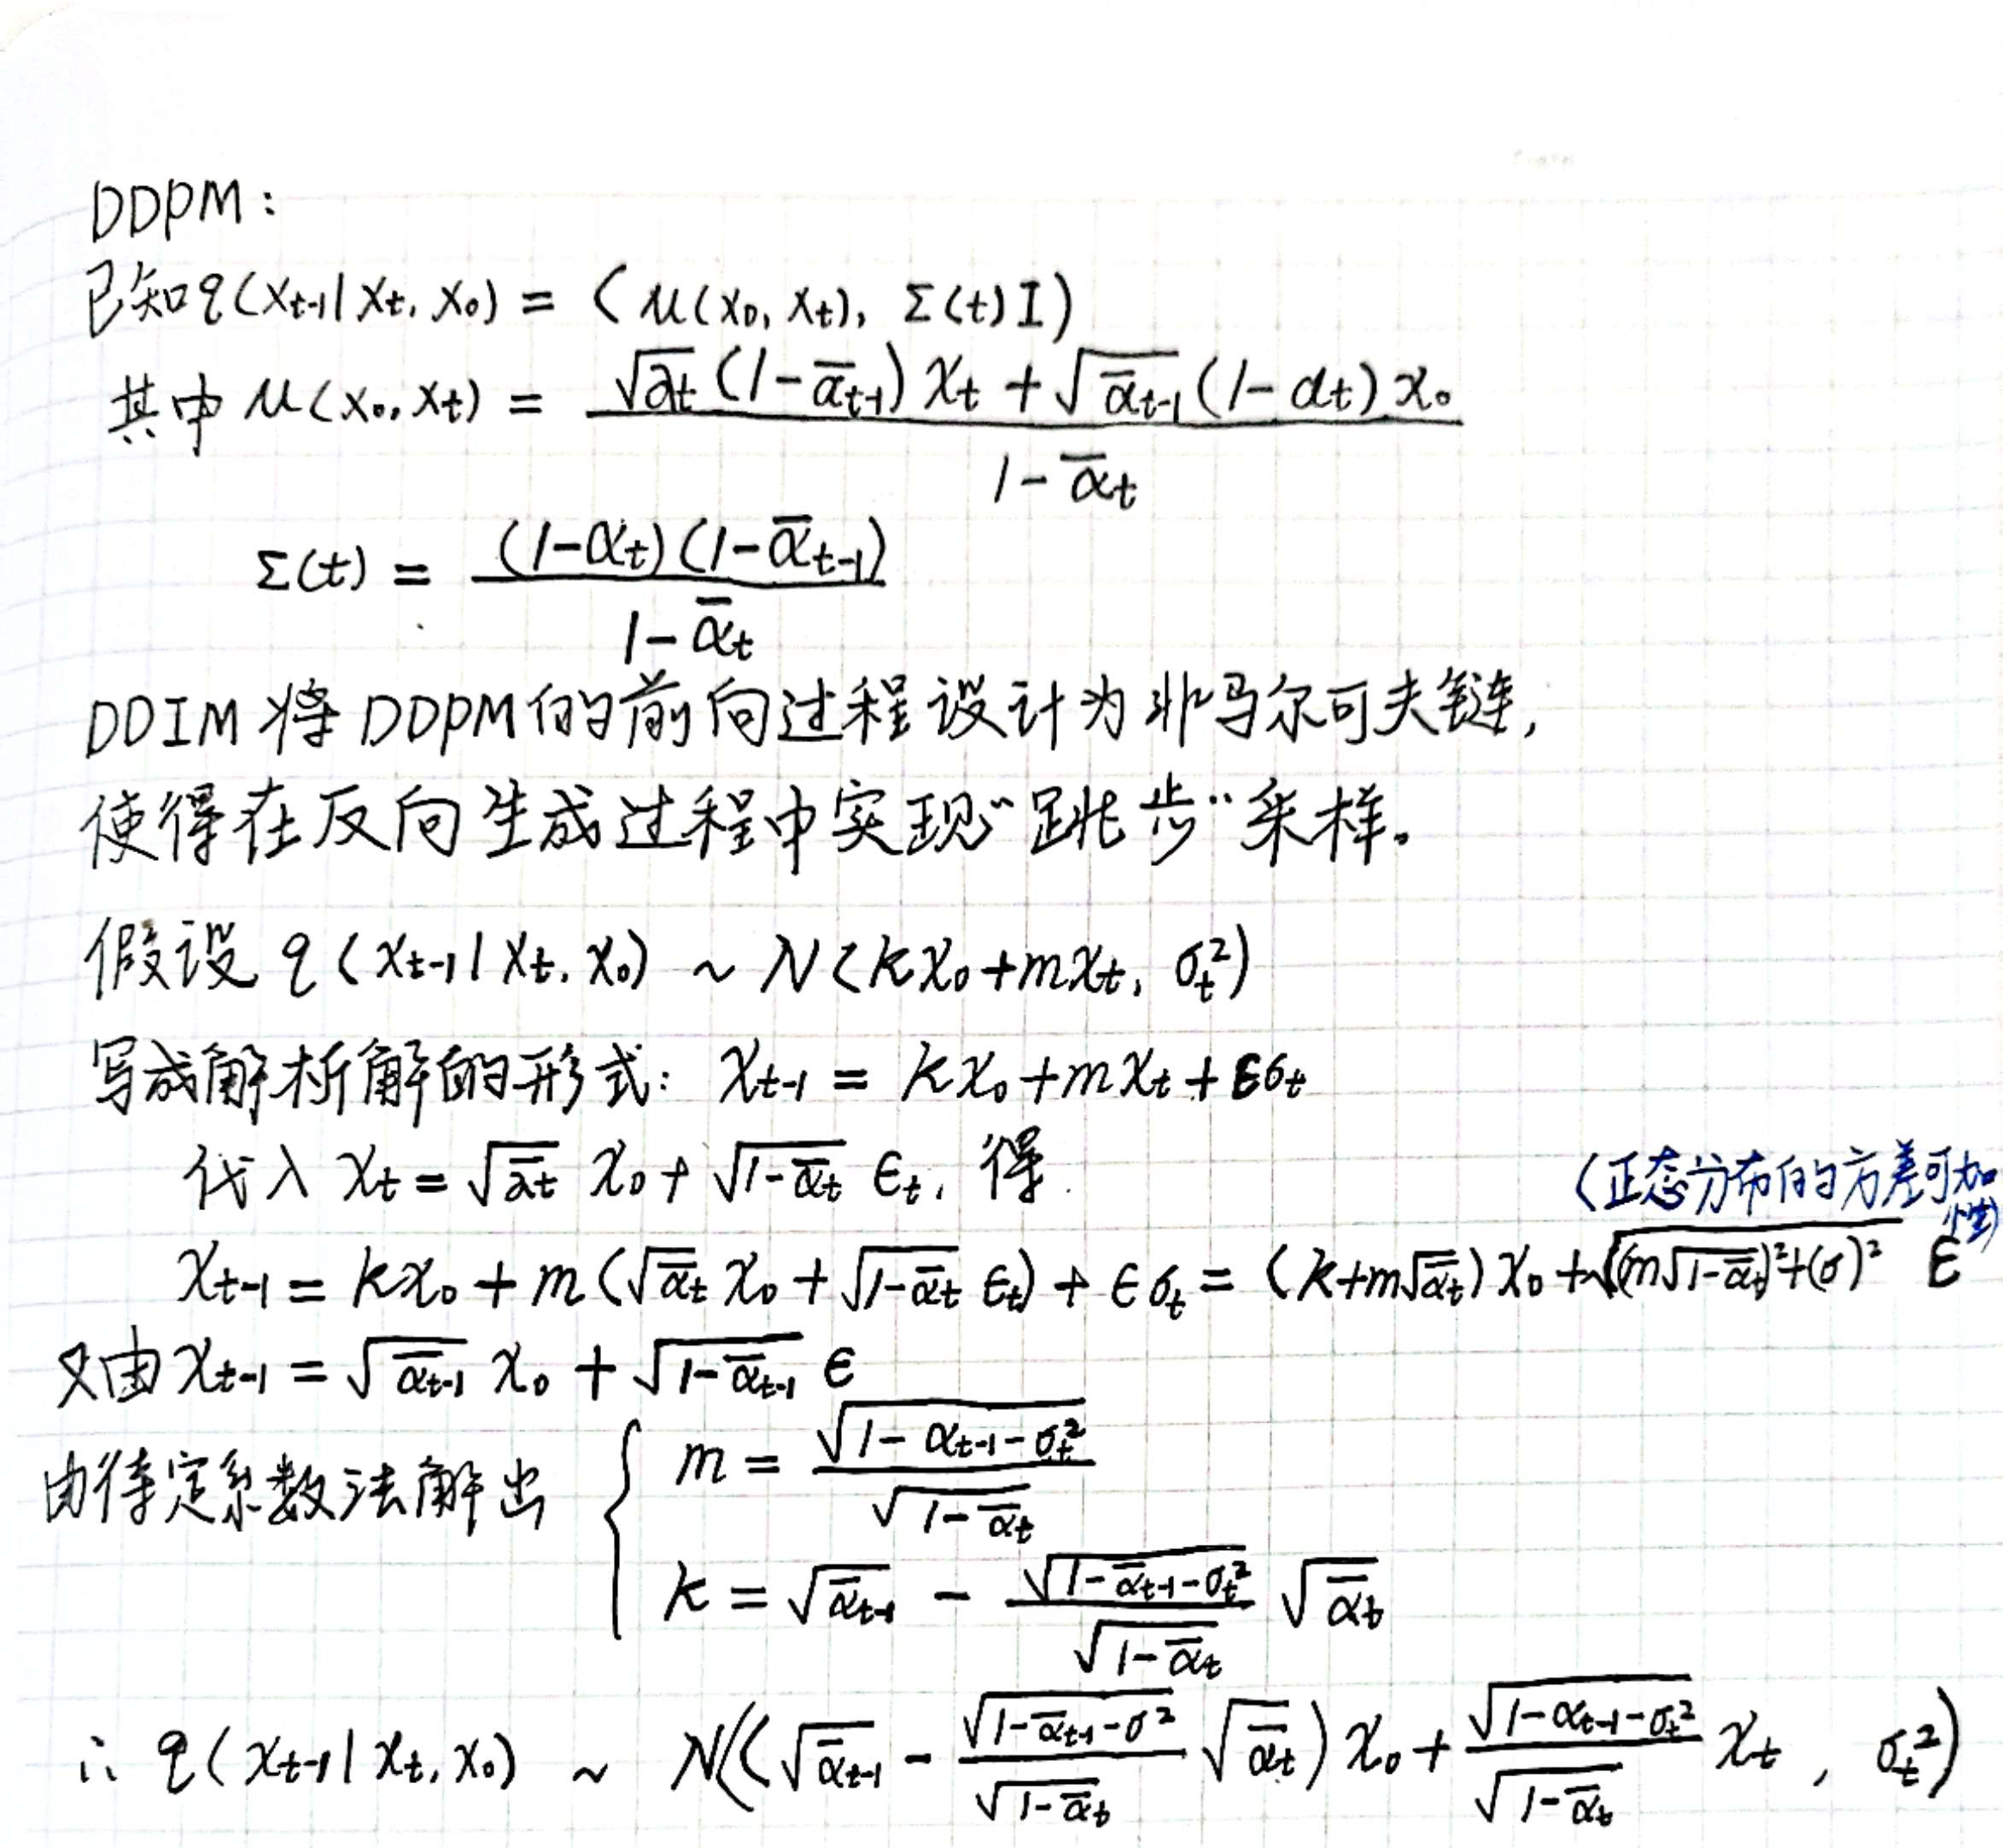 DDPM:
已知q(x_{t-1}|x_t, x_0) = (μ(x_0, x_t), Σ(t)I)
其中 μ(x_0, x_t) = \frac{\sqrt{α_t}(1-\overline{α}_{t-1})x_t + \sqrt{\overline{α}_{t-1}}(1-α_t)x_0}{1-\overline{α}_t}
Σ(t) = \frac{(1-α_t)(1-\overline{α}_{t-1})}{1-\overline{α}_t}
DDIM将DDPM的前向过程设计为非马尔可夫链,
使得在反向生成过程中实现“跳步”采样。
假设 q(x_{t-1}|x_t, x_0) ~ N(kx_0+mx_t, σ_t^2)
写成解析解的形式: x_{t-1} = kx_0+mx_t+εσ_t
代入 x_t = \sqrt{\overline{α}_t} x_0 + \sqrt{1-\overline{α}_t} ε_t, 得
(正态分布的方差可加性)
x_{t-1} = kx_0 + m(\sqrt{\overline{α}_t} x_0 + \sqrt{1-\overline{α}_t} ε_t) + εσ_t = (k+m\sqrt{\overline{α}_t})x_0 + \sqrt{(m\sqrt{1-\overline{α}_t})^2+(σ)^2} ε
又由 x_{t-1} = \sqrt{\overline{α}_{t-1}} x_0 + \sqrt{1-\overline{α}_{t-1}} ε
由待定系数法解出 { m = \frac{\sqrt{1-α_{t-1}-σ_t^2}}{\sqrt{1-\overline{α}_t}}
k = \sqrt{\overline{α}_{t-1}} - \frac{\sqrt{1-\overline{α}_{t-1}-σ_t^2}}{\sqrt{1-\overline{α}_t}} \sqrt{\overline{α}_t}
∴ q(x_{t-1}|x_t, x_0) ~ N((\sqrt{\overline{α}_{t-1}} - \frac{\sqrt{1-\overline{α}_{t-1}-σ^2}}{\sqrt{1-\overline{α}_t}} \sqrt{\overline{α}_t})x_0 + \frac{\sqrt{1-α_{t-1}-σ_t^2}}{\sqrt{1-\overline{α}_t}} x_t, σ_t^2)